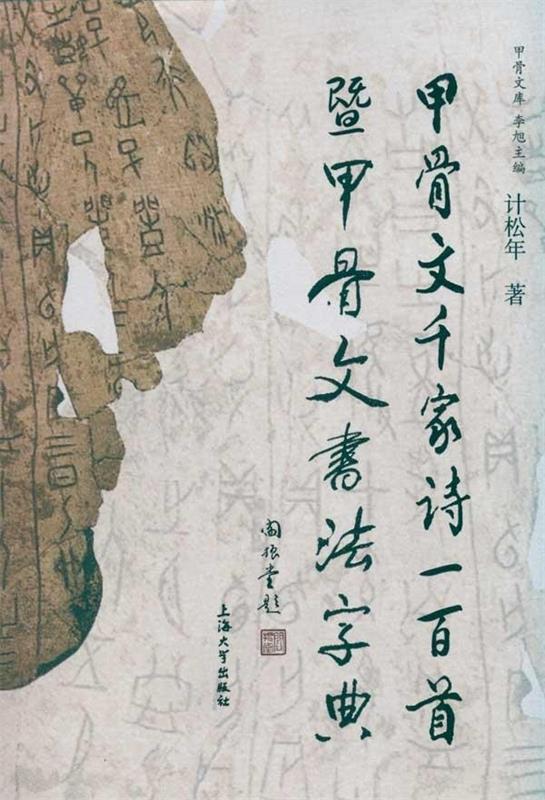 甲骨文库 李旭主编
计松年 著
甲骨文千家诗一百首
暨甲骨文书法字典
题
上海大学出版社